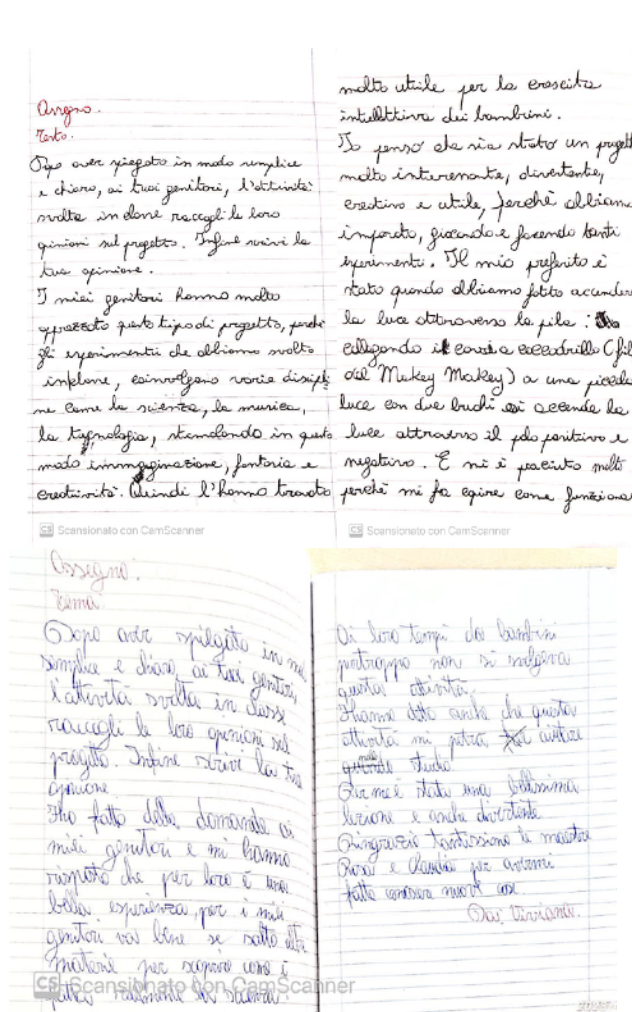 Assegno.
Testo.
Dopo aver spiegato in modo semplice
e chiaro, ai tuoi genitori, l'attività
svolta in classe raccogli le loro
opinioni sul progetto. Infine scrivi la
tua opinione.
I miei genitori hanno molto
apprezzato questo tipo di progetto, perché
gli esperimenti che abbiamo svolto
in classe, coinvolgono varie discipli
ne come la scienza, la musica,
la tegnologia, stimolando in questo
modo immaginazione, fantasia e
creatività. Quindi l'hanno trovato
CS Scansionato con CamScanner
molto utile per la crescita
intellettiva dei bambini.
Io penso che sia stato un progett
molto interessante, divertente,
creativo e utile, perché abbiamo
imparato, giocando e facendo tanti
esperimenti. Il mio preferito è
stato quando abbiamo fatto accendere
la luce attraverso la pila:
collegando i cavi a coccodrillo (fili
del Makey Makey) a una piccola
luce con due buchi si accende la
luce attraverso il polo positivo e
negativo. E mi è piaciuto molto
perché mi fa capire come funziona
CS Scansionato con CamScanner
Assegno:
Tema:
Dopo aver spiegato in mo
semplice e chiaro, ai tuoi genitori,
l'attività svolta in classe
raccogli le loro opinioni sul
progetto. Infine scrivi la tua
opinione
Ho fatto delle domande ai
miei genitori e mi hanno
risposto che per loro è una
bella esperienza, per i miei
genitori va bene se salto altre
materie per scoprire come è
fatta realmente la scienza.
CS Scansionato con CamScanner
Ai loro tempi da bambini
purtroppo non si svolgeva
questa attività.
Hanno detto anche che questa
attività mi potrà aiutare
nello studio.
Per me è stata una bellissima
lezione e anche divertente.
Ringrazio tantissimo le maestre
Rosa e Claudia per avermi
fatto conoscere nuove cose.
Viviana.